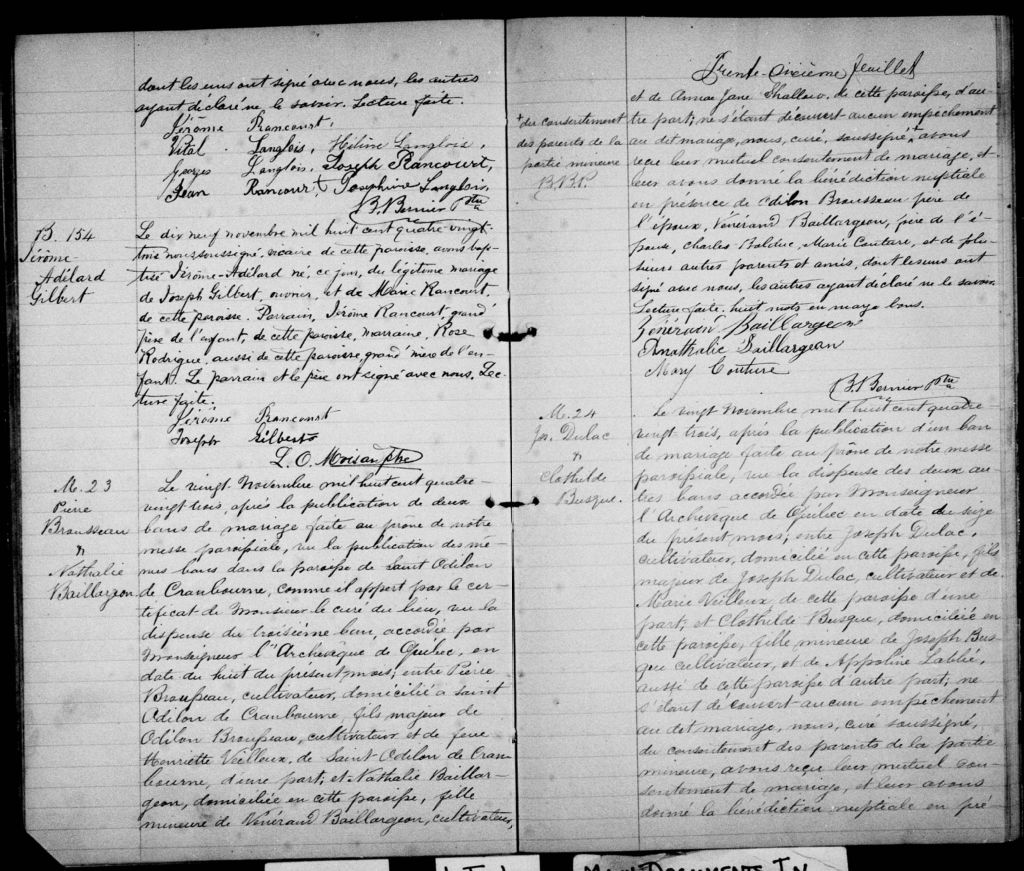 dont les uns ont signé avec nous, les autres
ayant déclaré ne le savoir. Lecture faite.
Jérôme Rancourt,
Vital Langlois, Hélène Langlois,
Georges Langlois, Joseph Rancourt,
Jean Rancourt, Josephine Langlois,
B. Bernier Ptre
B. 154
Jérôme
Adélard
Gilbert
Le dix neuf novembre mil huit cent quatre vingt
trois nous soussigné, vicaire de cette paroisse, avons bap-
tisé Jérôme-Adélard né, ce jour, du légitime mariage
de Joseph Gilbert, ouvrier, et de Marie Rancourt,
de cette paroisse. Parrain, Jérôme Rancourt, grand
père de l'enfant, de cette paroisse, marraine, Rose
Rodrigue, aussi de cette paroisse, grand'mère de l'en-
fant. Le parrain et le père ont signé avec nous. Lec-
ture faite.
Jérôme Rancourt
Joseph Gilberts
L. O. Moisan ptre
M. 23
Piere
Brousseau
&
Nathalie
Baillargeon
Le vingt Novembre mil huit cent quatre-
vingt trois, après la publication de deux
bans de mariage faite au prône de notre
messe paroissiale, vu la publication des mê-
mes bans dans la paroisse de Saint Odilon
de Cranbourne, comme il appert par le cer-
tificat de Monsieur le curé du lieu, vu la
dispense du troisième ban, accordée par
Monseigneur l'Archevêque de Québec, en
date du huit du présent mois; entre Pierre
Brousseau, cultivateur, domicilié à Saint
Odilon de Cranbourne, fils majeur de
Odilon Brousseau, cultivateur et de feue
Henriette Veilleux, de Saint Odilon de Cran-
bourne, d'une part; et Nathalie Baillar-
geon, domiciliée en cette paroisse, fille
mineure de Vénérand Baillargeon, cultivateur,
Trente-sixième feuillet
et de Anna Jane Shallow, de cette paroisse, d'au-
tre part; ne s'étant découvert aucun empêchement
au dit mariage, nous, curé, soussigné, + avons
reçu leur mutuel consentement de mariage, et
leur avons donné la bénédiction nuptiale
en présence de Odilon Brousseau père de
l'époux, Vénérand Baillargeon, père de l'é-
pouse, Charles Bolduc, Marie Couture, et de plu-
sieurs autres parents et amis, dont les uns ont
signé avec nous, les autres ayant déclaré ne le savoir.
Lecture faite. huit mots en marge bons.
+ du consentement
des parents de la
partie mineure
B.B.P.
Vénérand Baillargeon
Anathalie Baillargean
Mary Couture
B. Bernier Ptre
M. 24
Jos. Dulac
&
Clothilde
Busque.
Le vingt Novembre mil huit cent quatre
vingt trois, après la publication d'un ban
de mariage faite au prône de notre messe
paroissiale, vu la dispense des deux au-
tres bans accordée par Monseigneur
l'Archevêque de Québec en date du seize
du présent mois; entre Joseph Dulac,
cultivateur, domicilié en cette paroisse, fils
majeur de Joseph Dulac, cultivateur et de
Marie Veilleux, de cette paroisse d'une
part; et Clothilde Busque, domiciliée en
cette paroisse, fille mineure de Joseph Bus
que cultivateur, et de Appoline Labbé,
aussi de cette paroisse d'autre part; ne
s'étant découvert aucun empêchement
au dit mariage, nous, curé soussigné,
du consentement des parents de la partie
mineure, avons reçu leur mutuel con-
sentement de mariage, et leur avons
donné la bénédiction nuptiale en pré-